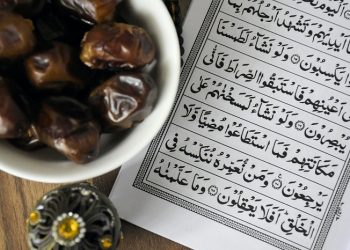 اَيْدِيْهِمْ وَتَشْهَدُ اَرْجُلُهُمْ بِمَا
يَكْسِبُوْنَ ۝ وَلَوْ نَشَآءُ لَطَمَسْنَا
اَعْيُنِهِمْ فَاسْتَبَقُوا الصِّرَاطَ فَاَنّٰى
يُبْصِرُوْنَ ۝ وَلَوْ نَشَآءُ لَمَسَخْنٰهُمْ عَلٰى
مَكَانَتِهِمْ فَمَا اسْتَطَاعُوْا مُضِيًّا وَّلَا
يَرْجِعُوْنَ ۝ وَمَنْ نُّعَمِّرْهُ نُنَكِّسْهُ فِى
الْخَلْقِ ؕ اَفَلَا يَعْقِلُوْنَ ۝ وَمَا عَلَّمْنٰهُ